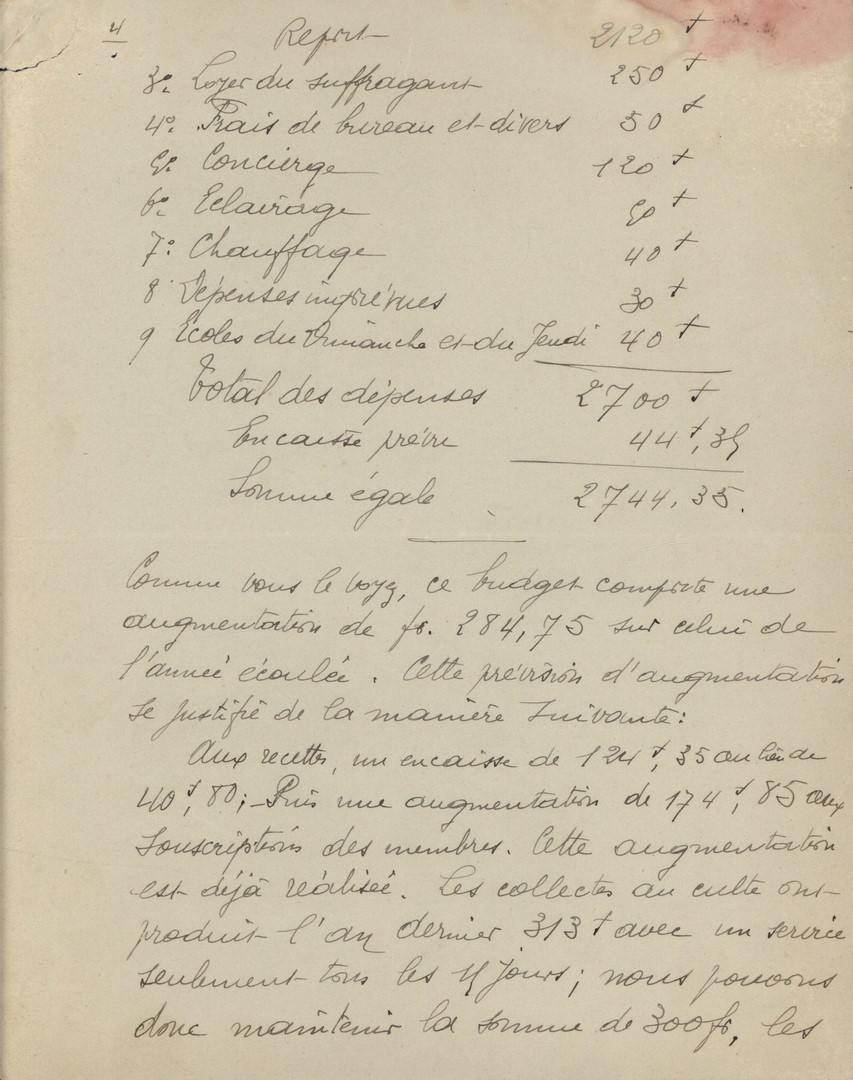 4
Report 2120 f
3º. Loyer du suffragant 250 f
4º. Frais de bureau et divers 50 f
5º. Concierge 120 f
6º. Eclairage 50 f
7º. Chauffage 40 f
8 Dépenses imprévues 30 f
9 Ecoles du Dimanche et du Jeudi 40 f
Total des dépenses 2700 f
Encaisse prévue 44 f, 35
Somme égale 2744, 35.
Comme vous le voyez, ce budget comporte une
augmentation de fr. 284,75 sur celui de
l'année écoulée. Cette prévision d'augmentation
se justifie de la manière suivante:
Aux recettes, un encaisse de 124 f, 35 au lieu de
40 f, 80; Puis une augmentation de 174 f, 85 aux
souscriptions des membres. Cette augmentation
est déjà réalisée. Les collectes au culte ont
produit l'an dernier 313 f avec un service
seulement tous les 15 jours; nous pouvons
donc maintenir la somme de 300 fr, les